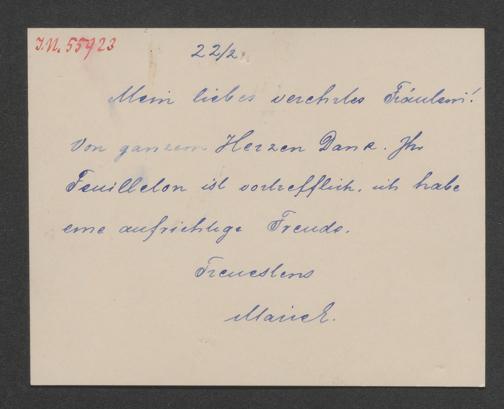 I.N. 55923
22/2.
Mein liebes verehrtes Fräulein!
Von ganzem Herzen Dank. Ihr
Feuilleton ist vortrefflich, ich habe
eine aufrichtige Freude.
Treuestens